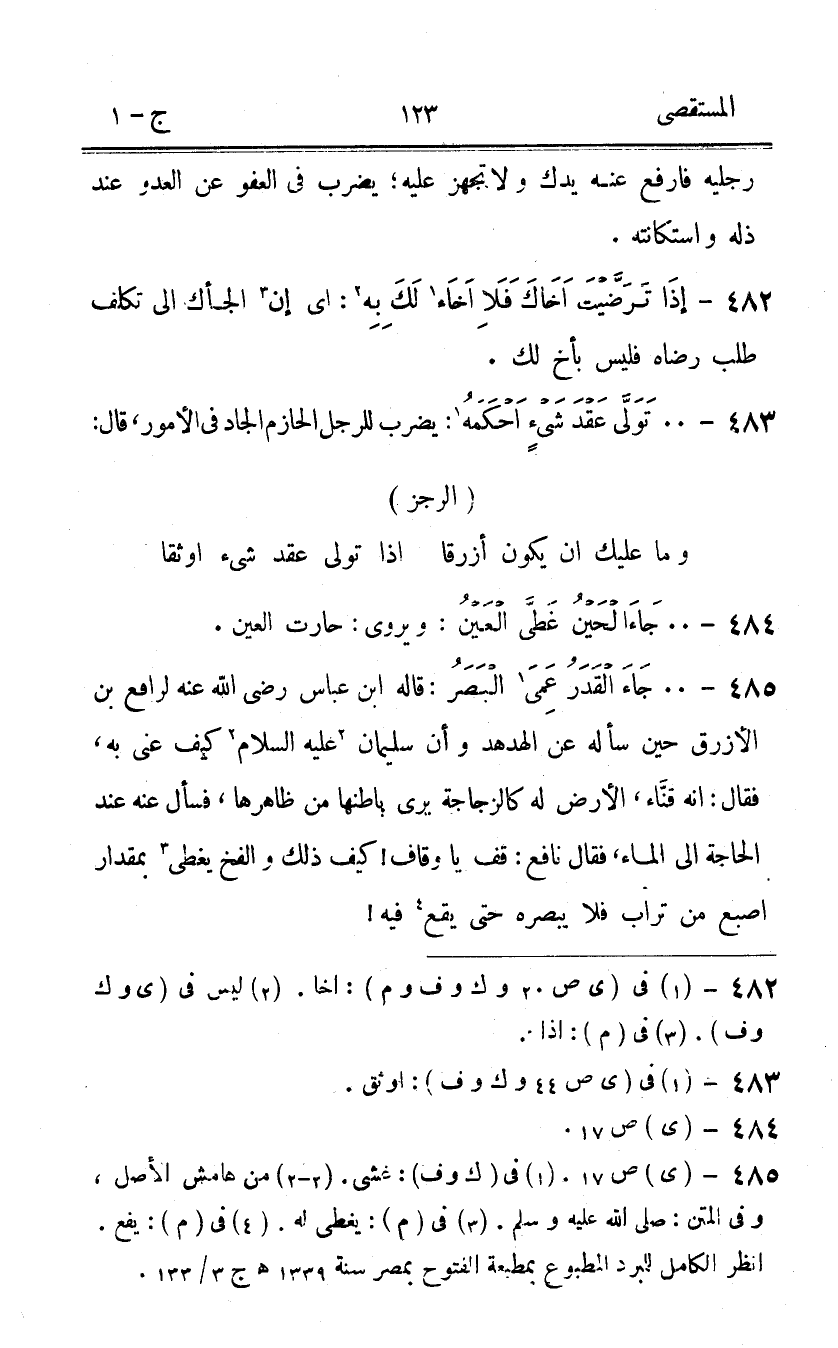 المستقصى ١٢٣ ج - ١
رجليه فارفع عنه يدك و لا تجهز عليه؛ يضرب فى العفو عن العدو عند
ذله و استكانته .
٤٨٢ - إِذَا تَرَضَّيْتَ اَخَاكَ فَلَا اَخَاءَ١ لَكَ بِهِ٢ : اى إن٣ الجأك الى تكلف
طلب رضاه فليس بأخ لك .
٤٨٣ - ٠٠ تَوَلَّى عَقْدَ شَيْءٍ اَحْكَمَهُ١ : يضرب للرجل الحازم الجاد فى الأمور، قال:
( الرجز )
و ما عليك ان يكون أزرقا اذا تولى عقد شىء اوثقا
٤٨٤ - ٠٠ جَاءَ الْحَيْنُ غَطَّى الْعَيْنَ : و يروى : حارت العين .
٤٨٥ - ٠٠ جَاءَ الْقَدَرُ عَمِىَ١ الْبَصَرُ : قاله ابن عباس رضى الله عنه لرافع بن
الأزرق حين سأله عن الهدهد و أن سليمان ٢عليه السلام٢ كيف عنى به،
فقال : انه قنَّاء، الأرض له كالزجاجة يرى باطنها من ظاهرها، فسأل عنه عند
الحاجة الى الماء، فقال نافع : قف يا وقاف! كيف ذلك و الفخ يغطى٣ بمقدار
اصبع من تراب فلا يبصره حتى يقع٤ فيه!
٤٨٢ - (١) فى (ى ص ٢٠ و ك و ف و م ) : اخا . (٢) ليس فى ( ى و ك
و ف ) . (٣) فى ( م ) : اذا .
٤٨٣ - (١) فى ( ى ص ٤٤ و ك و ف ) : اوثق .
٤٨٤ - ( ى ) ص ١٧ .
٤٨٥ - ( ى ) ص ١٧ . (١) فى ( ك و ف ) : غشى . (٢-٢) من هامش الأصل ،
و فى المتن : صلى الله عليه و سلم . (٣) فى ( م ) : يغطى له . (٤) فى ( م ) : يفع .
انظر الكامل للبرد المطبوع بمطبعة الفتوح بمصر سنة ١٣٣٩ ه ج ٣ / ١٣٣ .